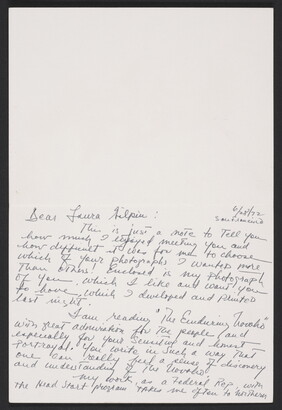 6/28/72
Dear Laura Gilpin:
This is just a note to tell you
how much I enjoyed meeting you and
how difficult it was for me to choose
which of your photographs I wanted more
than others! Enclosed is my photograph
of you, which I like and want you
to have, which I developed and printed
last night.
I am reading "The Enduring Navaho"
with great admiration for the people (and
especially for your sensitive and honest
portrayal). You write in such a way that
one can really feel a sense of discovery
and understanding of the Navaho.
My work, as a Federal Rep. with
the Head Start program takes me often to Northern